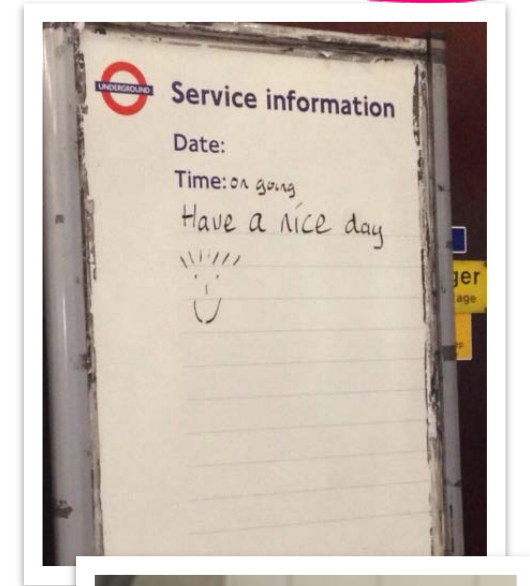 UNDERGROUND
Service information
Date:
Time: on going
Have a nice day
ger
age